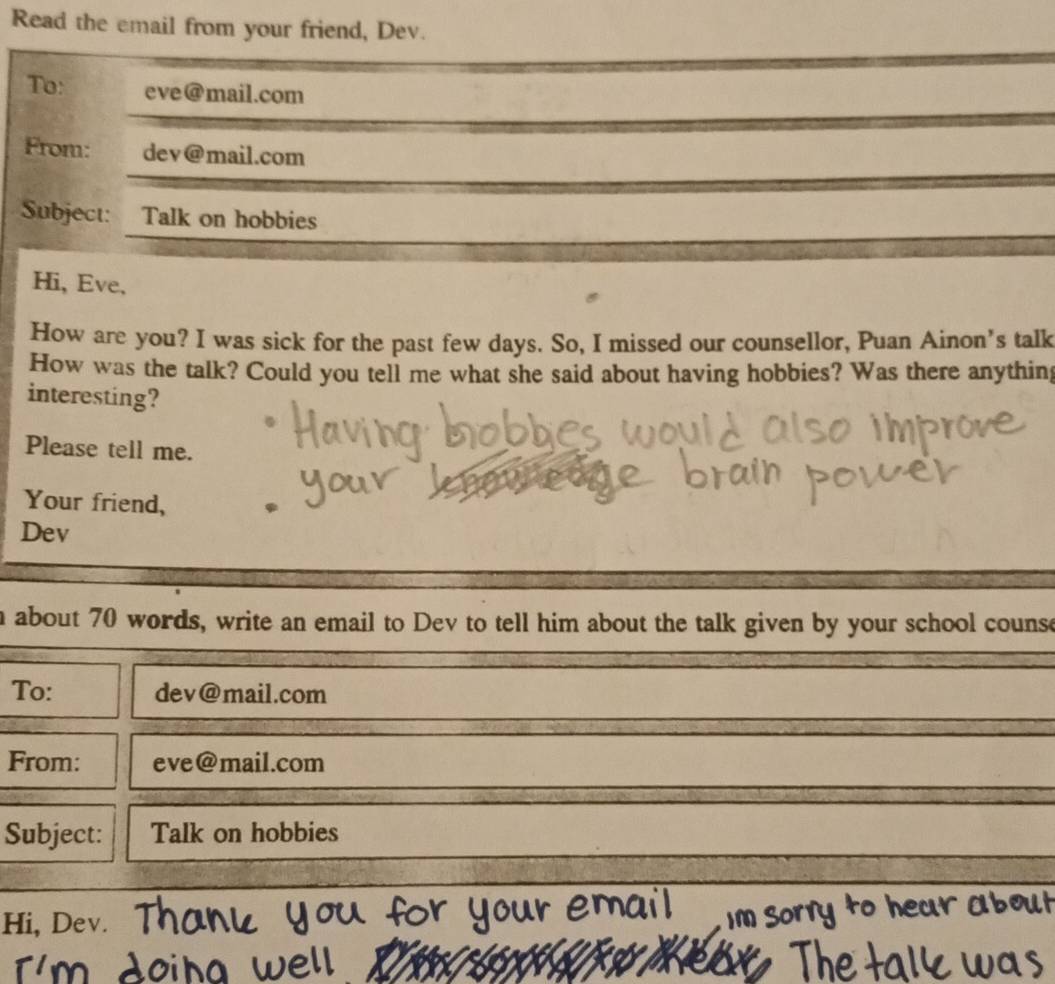 Read the email from your friend, Dev.
To: eve@mail.com
From: dev@mail.com
Subject: Talk on hobbies
Hi, Eve,
How are you? I was sick for the past few days. So, I missed our counsellor, Puan Ainon's talk
How was the talk? Could you tell me what she said about having hobbies? Was there anything
interesting?
• Having hobbyes would also improve
Please tell me.
your brain power
Your friend,
Dev
about 70 words, write an email to Dev to tell him about the talk given by your school counse
To: dev@mail.com
From: eve@mail.com
Subject: Talk on hobbies
Hi, Dev. Thank you for your email, im sorry to hear about
I'm doing well The talk was